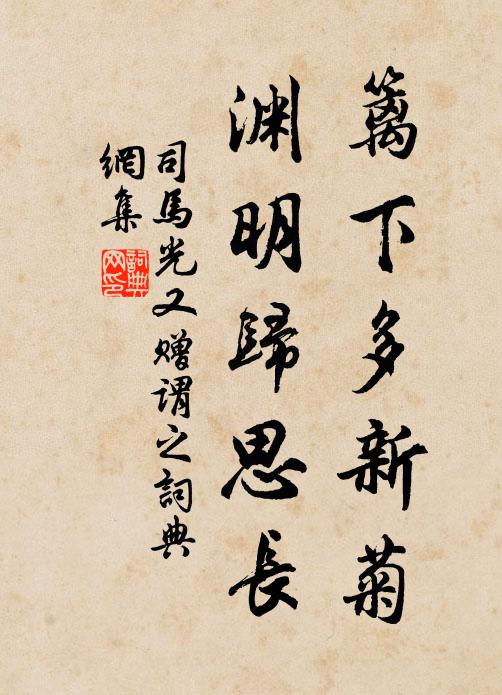 籬下多新菊
渊明歸思長
司馬光又贈谓之詞典
網集
詞典
网印